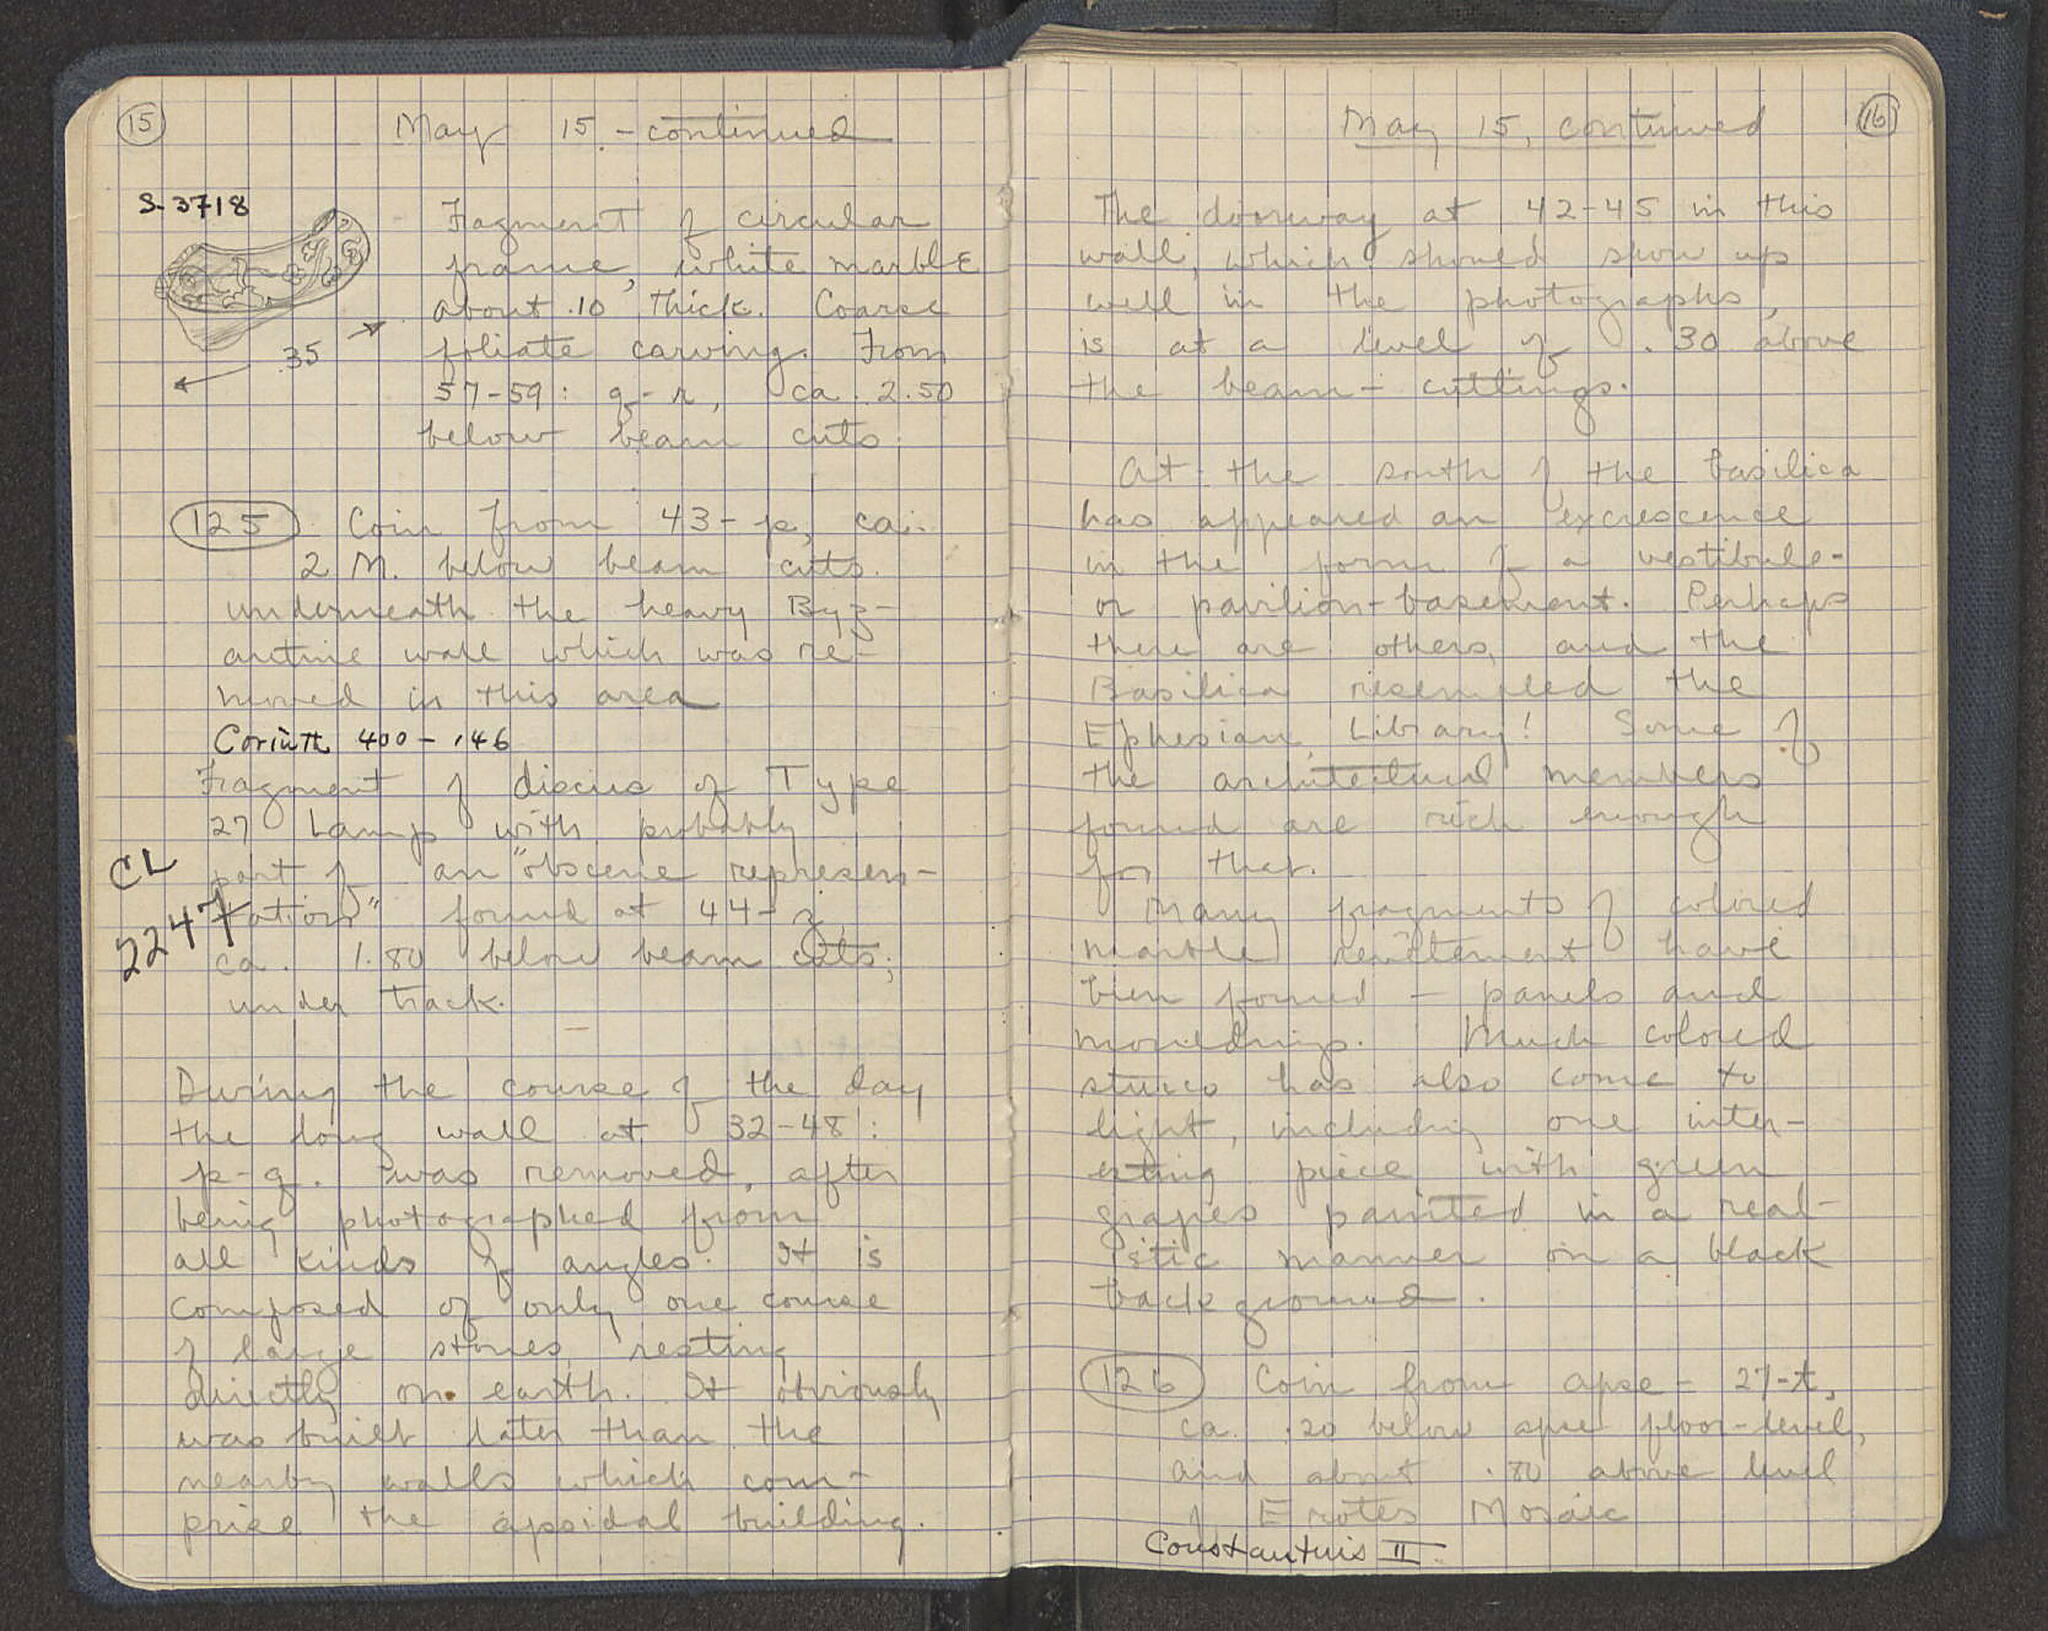 15
May 15 - continued
S-3718
.35
Fragment of circular
frame, white marble
about .10 thick. Coarse
foliate carving. From
57-59: q-r, ca. 2.50
below beam cuts.
125 Coin from 43-p, ca.
2 M. below beam cuts.
underneath the heavy Byz-
antine wall which was re-
moved in this area
Corinth 400-146
Fragment of discus of Type
27 Lamp with probably
part of an "obscene represen-
tation" found at 44-
ca. 1.80 below beam cuts;
under track.
CL
2247
During the course of the day
the long wall at 32-48:
p-q. was removed, after
being photographed from
all kinds of angles. It is
composed of only one course
of large stones resting
directly on earth. It obviously
was built later than the
nearby walls which com-
prise the apsidal building.
May 15, continued
16
The doorway at 42-45 in this
wall, which should show up
well in the photographs,
is at a level of .30 above
the beam-cuttings.
At the south of the basilica
has appeared an excrescence
in the form of a vestibule-
or pavilion-basement. Perhaps
there are others, and the
Basilica resembled the
Ephesian Library! Some of
the architectural members
found are rich enough
for that.
Many fragments of colored
marble revêtement have
been found - panels and
mouldings. Much colored
stucco has also come to
light, including one inter-
esting piece with green
grapes painted in a real-
istic manner on a black
background.
126 Coin from apse - 27-t,
ca. .20 below apse floor-level,
and about .80 above level
of Erotes Mosaic
Constantius II.